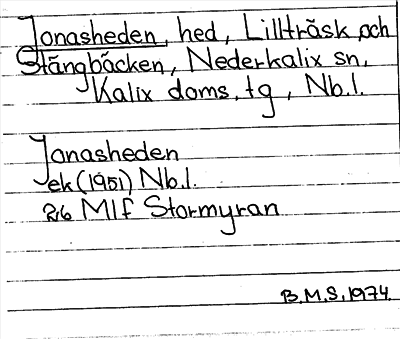 Jonasheden, hed, Lillträsk och
Stängbäcken, Nederkalix sn,
Kalix doms. tg, Nb.l.
Jonasheden
ek (1951) Nb.l.
26 Mlf Stormyran
B.M.S. 1974.